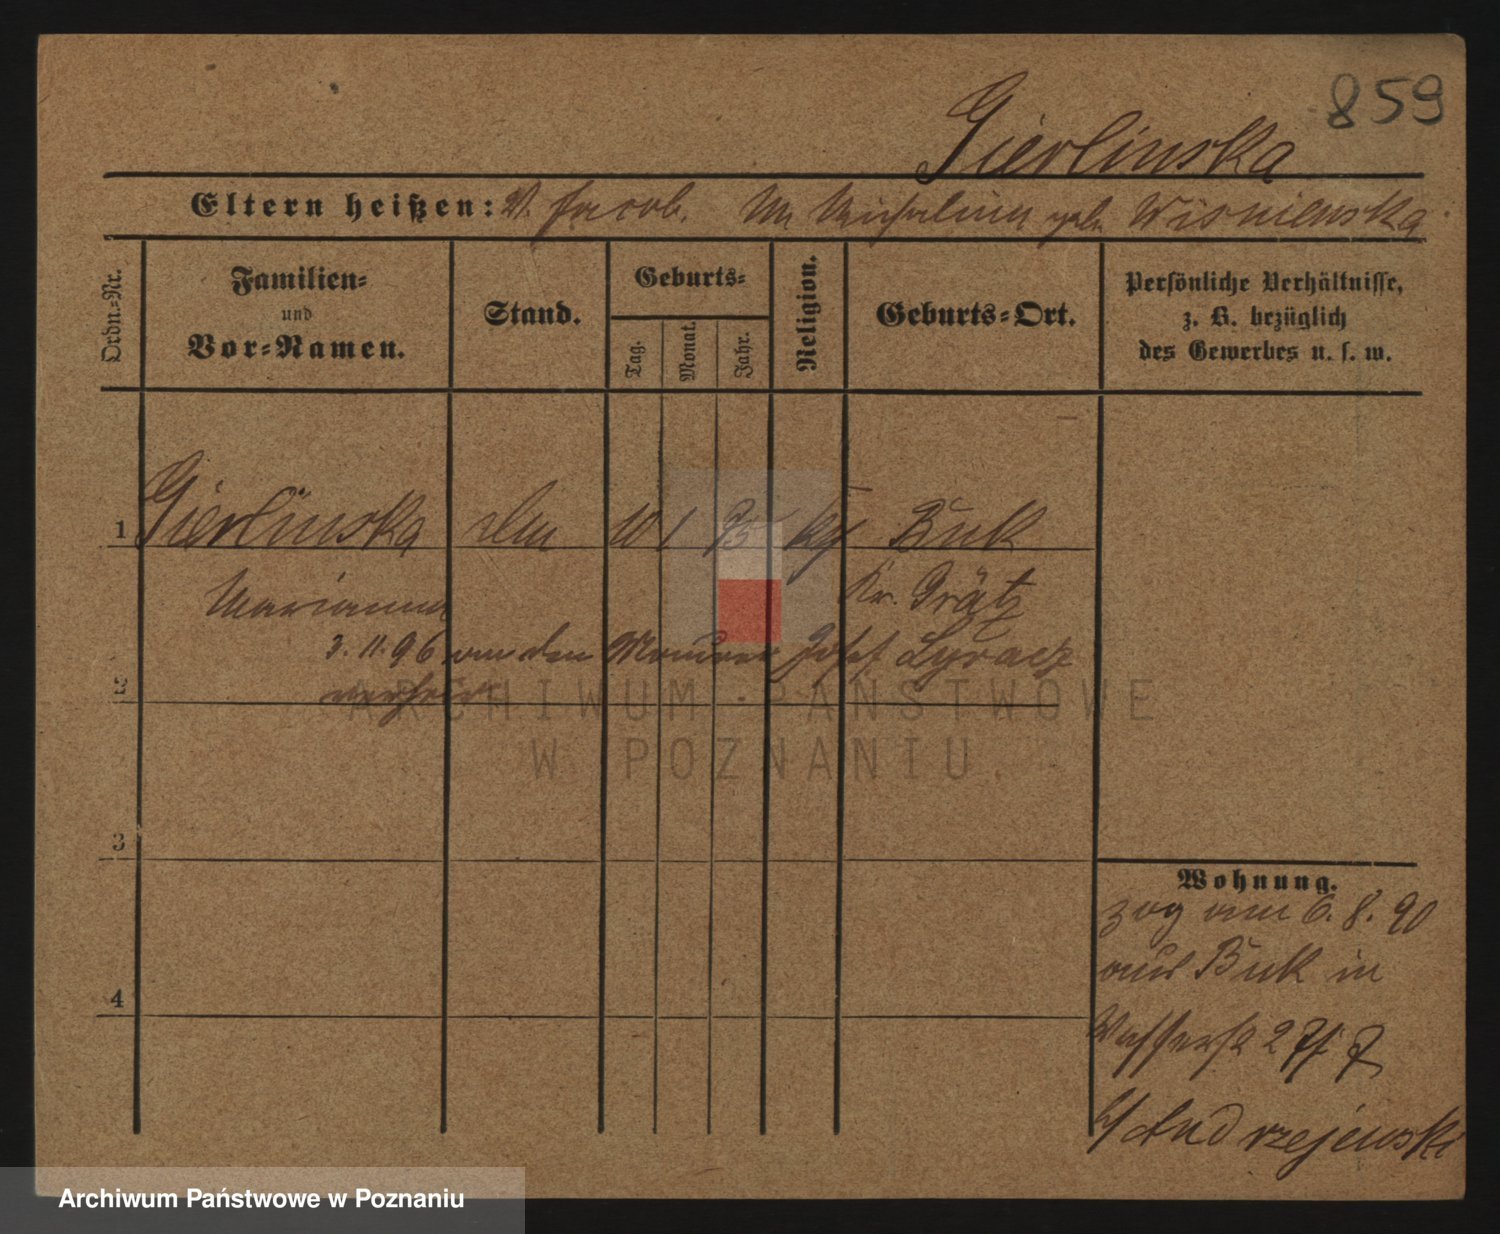 859
Gierlinska
Eltern heißen: V. Jacob. M. Michalina geb. Wisniewska
Ordn.-Nr.
Familien-
und
Vor-Namen.
Stand.
Geburts-
Tag.
Monat.
Jahr.
Religion.
Geburts-Ort.
Persönliche Verhältnisse,
z. B. bezüglich
des Gewerbes u. s. w.
1 Gierlinska 10 1 75 Buk
Marianna Kr. Grätz
3.11.96 an den Maurer Josef
2 verheir
3
4
Wohnung.
zog am 6. 8. 90
aus Buk in
Wasserstr 2
b/ Andrzejewski
ARCHIWUM PAŃSTWOWE
W POZNANIU
Archiwum Państwowe w Poznaniu